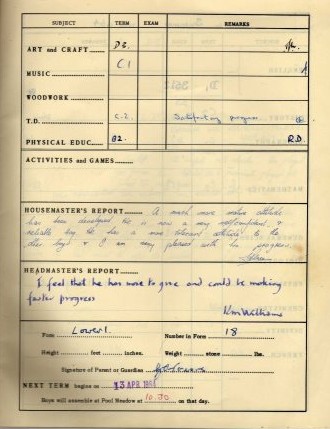 SUBJECT TERM EXAM REMARKS
ART and CRAFT D3.
MUSIC C1
WOODWORK
T.D. C.2. Satisfactory progress
PHYSICAL EDUC. B2. R.D.
ACTIVITIES and GAMES
HOUSEMASTER'S REPORT A much more mature attitude
has been developed. He is now a very self confident &
reliable boy. He has a more tolerant attitude to the
other boys & I am very pleased with his progress.
HEADMASTER'S REPORT
I feel that he has more to give and could be making
faster progress
Form Lower 1. Number in Form 18
Height feet inches. Weight stone lbs.
Signature of Parent or Guardian
NEXT TERM begins on 13 APR
Boys will assemble at Pool Meadow at 10.30 on that day.